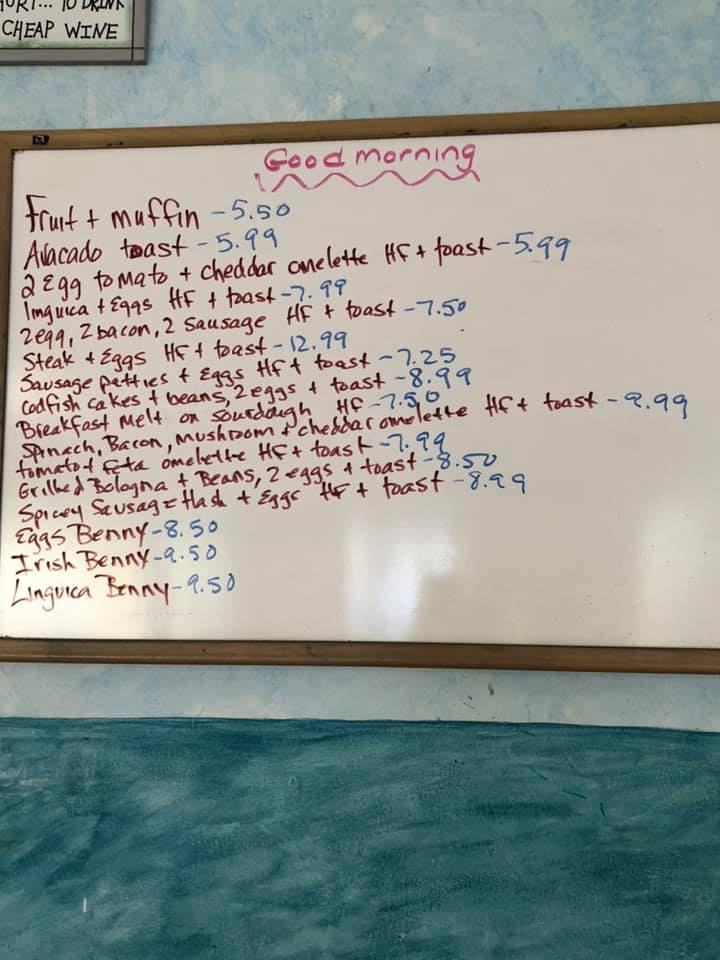 HURT... TO DRINK
CHEAP WINE
Good morning
Fruit + muffin - 5.50
Avacado toast - 5.99
2 Egg tomato + cheddar omelette HF + toast - 5.99
linguica + Eggs HF + toast - 7.99
2 egg, 2 bacon, 2 sausage HF + toast - 7.50
Steak + Eggs HF + toast - 12.99
Sausage patties + Eggs HF + toast - 7.25
Codfish cakes + beans, 2 eggs + toast - 8.99
Breakfast Melt on sourdough HF - 7.50
Spinach, Bacon, mushroom + cheddar omelette HF + toast - 9.99
tomato + feta omelette HF + toast - 7.99
Grilled Bologna + Beans, 2 eggs + toast - 8.50
Spicey Sausage Hash + Eggs HF + toast - 8.99
Eggs Benny - 8.50
Irish Benny - 9.50
Linguica Benny - 9.50